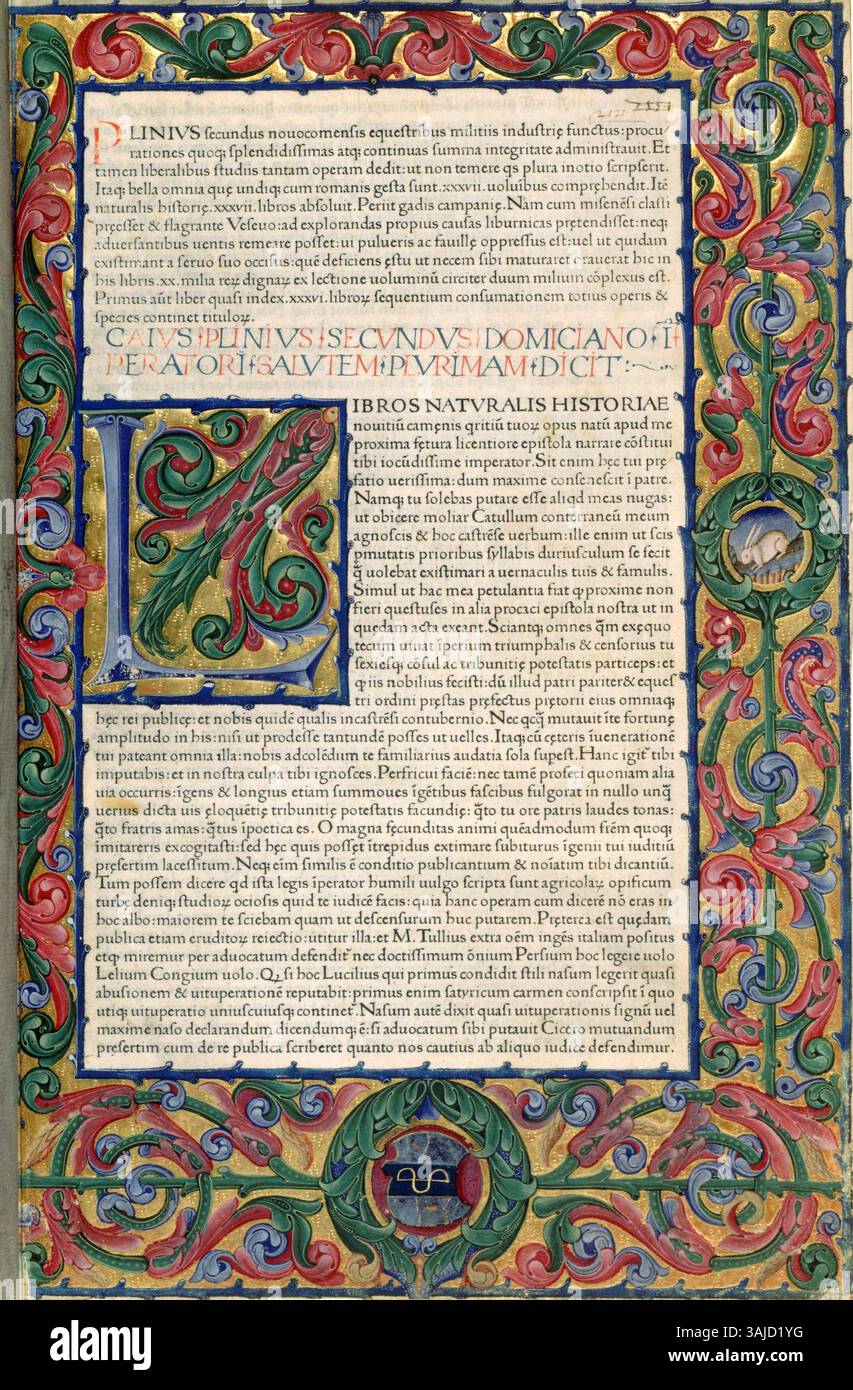 PLINIVS secundus nouocomensis equestribus militiis industrię functus:procu/
rationes quoq; splendidissimas atq; continuas summa integritate administrauit. Et
tamen liberalibus studiis tantam operam dedit: ut non temere qs plura inotio scripserit.
Itaq; bella omnia quę undiq; cum romanis gesta sunt .xxxvii. uoluibus comprẹhendit. Itē
naturalis historię .xxxvii. libros absoluit. Periit gadis campanię. Nam cum misenēsi classi
pręesset & flagrante Veseuo: ad explorandas propius causas liburnicas prętendisset: neq;
aduersantibus uentis remeare posset: ui pulueris ac fauillę oppressus est: uel ut quidam
existimant a seruo suo occisus: quē deficiens ęstu ut necem sibi maturaret orauerat hic in
his libris .xx. milia reꝝ dignaꝝ ex lectione uoluminū circiter duum milium cōplexus est.
Primus aūt liber quasi index .xxxvi. libroꝝ sequentium consumationem totius operis &
species continet tituloꝝ.
CAIVS PLINIVS SECVNDVS DOMICIANO Ī
PERATORI SALVTEM PLVRIMAM DICIT:
LIBROS NATVRALIS HISTORIAE
nouitiū camęnis q̄ritiū tuoꝝ opus natū apud me
proxima fętura licentiore epistola narrare cōstitui
tibi iocūdissime imperator. Sit enim hęc tui prę
fatio uerissima: dum maximo consenescit ī patre.
Namq; tu solebas putare esse aliqd meas nugas:
ut obicere moliar Catullum conterraneū meum
agnoscis & hoc castrēse uerbum: ille enim ut scis
pmutatis prioribus syllabis duriusculum se fecit
q̄ uolebat existimari a uernaculis tuis & famulis.
Simul ut hac mea petulantia fiat qp proxime non
fieri questuses in alia procaci epistola nostra ut in
quędam acta exeant. Sciantq; omnes q̄m exęquo
tecum uiuat iperium triumphalis & censorius tu
sexiesq; cōsul ac tribunitię potestatis particeps: et
qp iis nobilius fecisti: dū illud patri pariter & eques
tri ordini pręstas pręfectus prętorii eius omniaq;
hęc rei publicę: et nobis quidē qualis incastrēsi contubernio. Nec qcq̄ mutauit īte fortunę
amplitudo in his: nisi ut prodesse tantundē posses ut uelles. Itaq; cū cęteris īuenerationē
tui pateant omnia illa: nobis adcolēdum te familiarius audatia sola supest. Hanc igit' tibi
imputabis: et in nostra culpa tibi ignosces. Perfricui faciē: nec tamē profeci quoniam alia
uia occurris: īgens & longius etiam summoues īgētibus fascibus fulgorat in nullo unq̄
uerius dicta uis eloquētię tribunitię potestatis facundię: q̄to tu ore patris laudes tonas:
q̄to fratris amas: q̄tus ipoetica es. O magna fęcunditas animi quēadmodum frēm quoq;
imitareris excogitasti: sed hęc quis posset ītrepidus extimare subiturus īgenii tui iuditiū
pręsertim lacessitum. Neq; eīm similis ē conditio publicantium & noīatim tibi dicantiū.
Tum possem dicere qd ista legis īperator humili uulgo scripta sunt agricolaꝝ opificum
turbę deniq; studioꝝ ociosis quid te iudicē facis: quia hanc operam cum dicerē nō eras in
hoc albo: maiorem te sciebam quam ut descensurum huc putarem. Pręterea est quędam
publica etiam eruditoꝝ reiectio: utitur illa: et M. Tullius extra oēm ingēs italiam positus
etqp miremur per aduocatum defendit' nec doctissimum ōnium Persium hoc legere uolo
Lelium Congium uolo. Qꝝ si hoc Lucilius qui primus condidit stili nasum legerit quasi
abusionem & uituperationē reputabit: primus enim satyricum carmen conscripsit ī quo
utiq; uituperatio uniuscuiusq; continet'. Nasum autē dixit quasi uituperationis signū uel
maxime naso declarandum dicendumq; ē: si aduocatum sibi putauit Cicero mutuandum
pręsertim cum de re publica scriberet quanto nos cautius ab aliquo iudice defendimur.
alamy
Image ID: 3AJD1YG
www.alamy.com